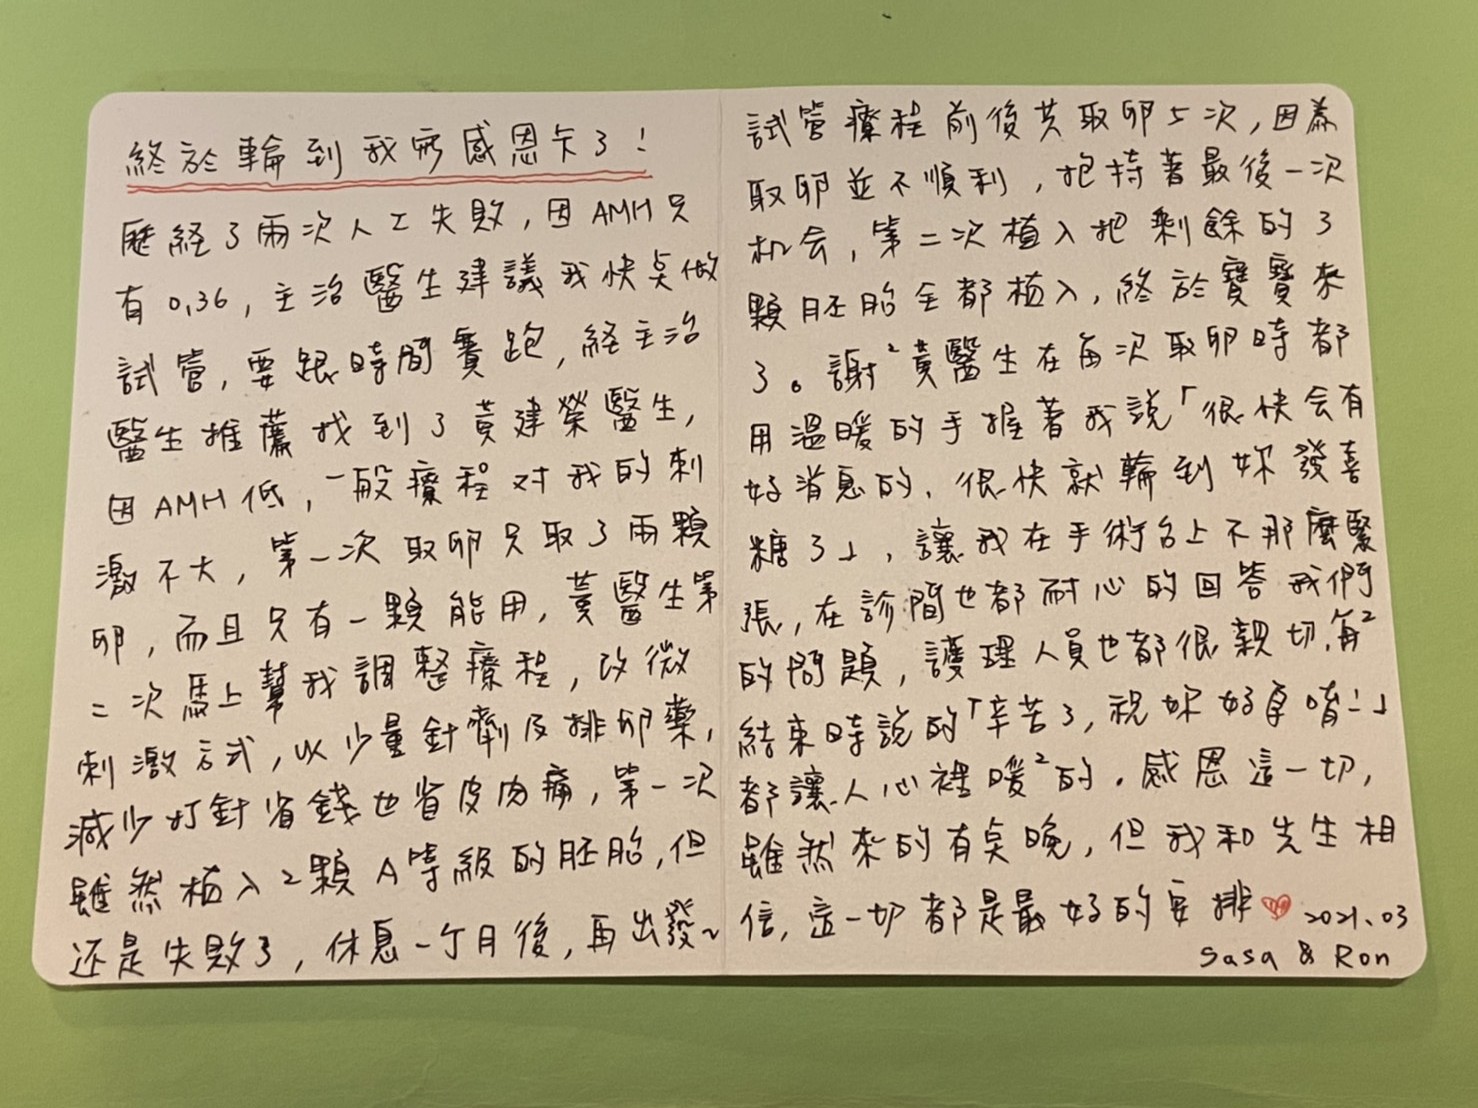 終於輪到我寫感恩卡了！
歷経了兩次人工失敗，因AMH只
有0.36，主治醫生建議我快点做
試管，要跟時間賽跑，経主治
醫生推薦找到了黃建榮醫生，
因AMH低，一般療程对我的刺
激不大，第一次取卵只取了兩顆
卵，而且只有一顆能用，黃醫生第
二次馬上幫我調整療程，改微
刺激方式，以少量針劑及排卵藥，
減少打針省錢也省皮肉痛，第一次
雖然植入2顆A等級的胚胎，但
还是失敗了，休息一个月後，再出發~
試管療程前後共取卵5次，因為
取卵並不順利，抱持著最後一次
机会，第二次植入把剩餘的3
顆胚胎全都植入，終於寶寶來
了。謝²黃醫生在每次取卵時都
用溫暖的手握著我說「很快会有
好消息的、很快就輪到妳發喜
糖了」，讓我在手術台上不那麼緊
張，在診間也都耐心的回答我們
的問題，護理人員也都很親切，每²
結束時說的「辛苦了，祝妳好孕唷！」
都讓人心裡暖²的。感恩這一切，
雖然來的有点晚，但我和先生相
信，這一切都是最好的安排 2021.03
Sasa & Ron